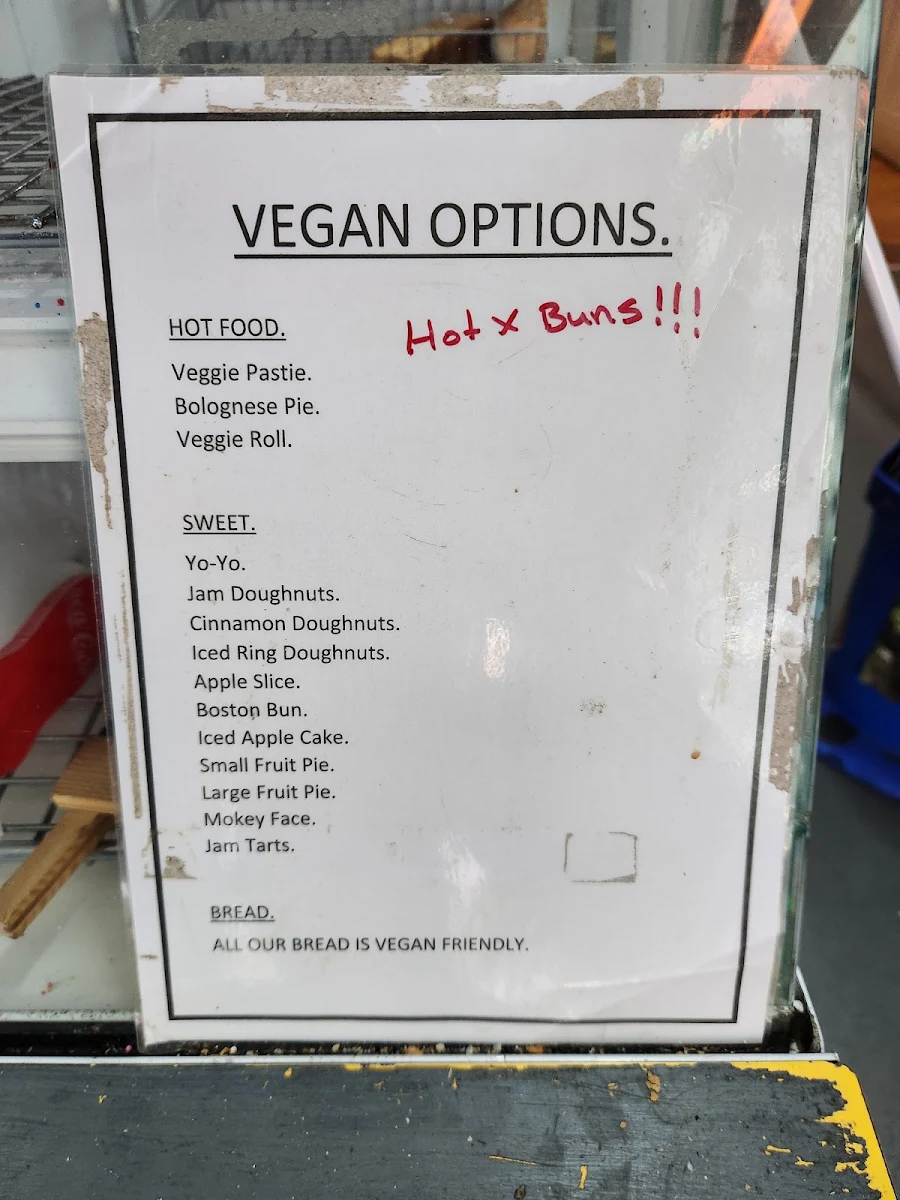 VEGAN OPTIONS.
Hot x Buns!!!
HOT FOOD.
Veggie Pastie.
Bolognese Pie.
Veggie Roll.
SWEET.
Yo-Yo.
Jam Doughnuts.
Cinnamon Doughnuts.
Iced Ring Doughnuts.
Apple Slice.
Boston Bun.
Iced Apple Cake.
Small Fruit Pie.
Large Fruit Pie.
Mokey Face.
Jam Tarts.
BREAD.
ALL OUR BREAD IS VEGAN FRIENDLY.